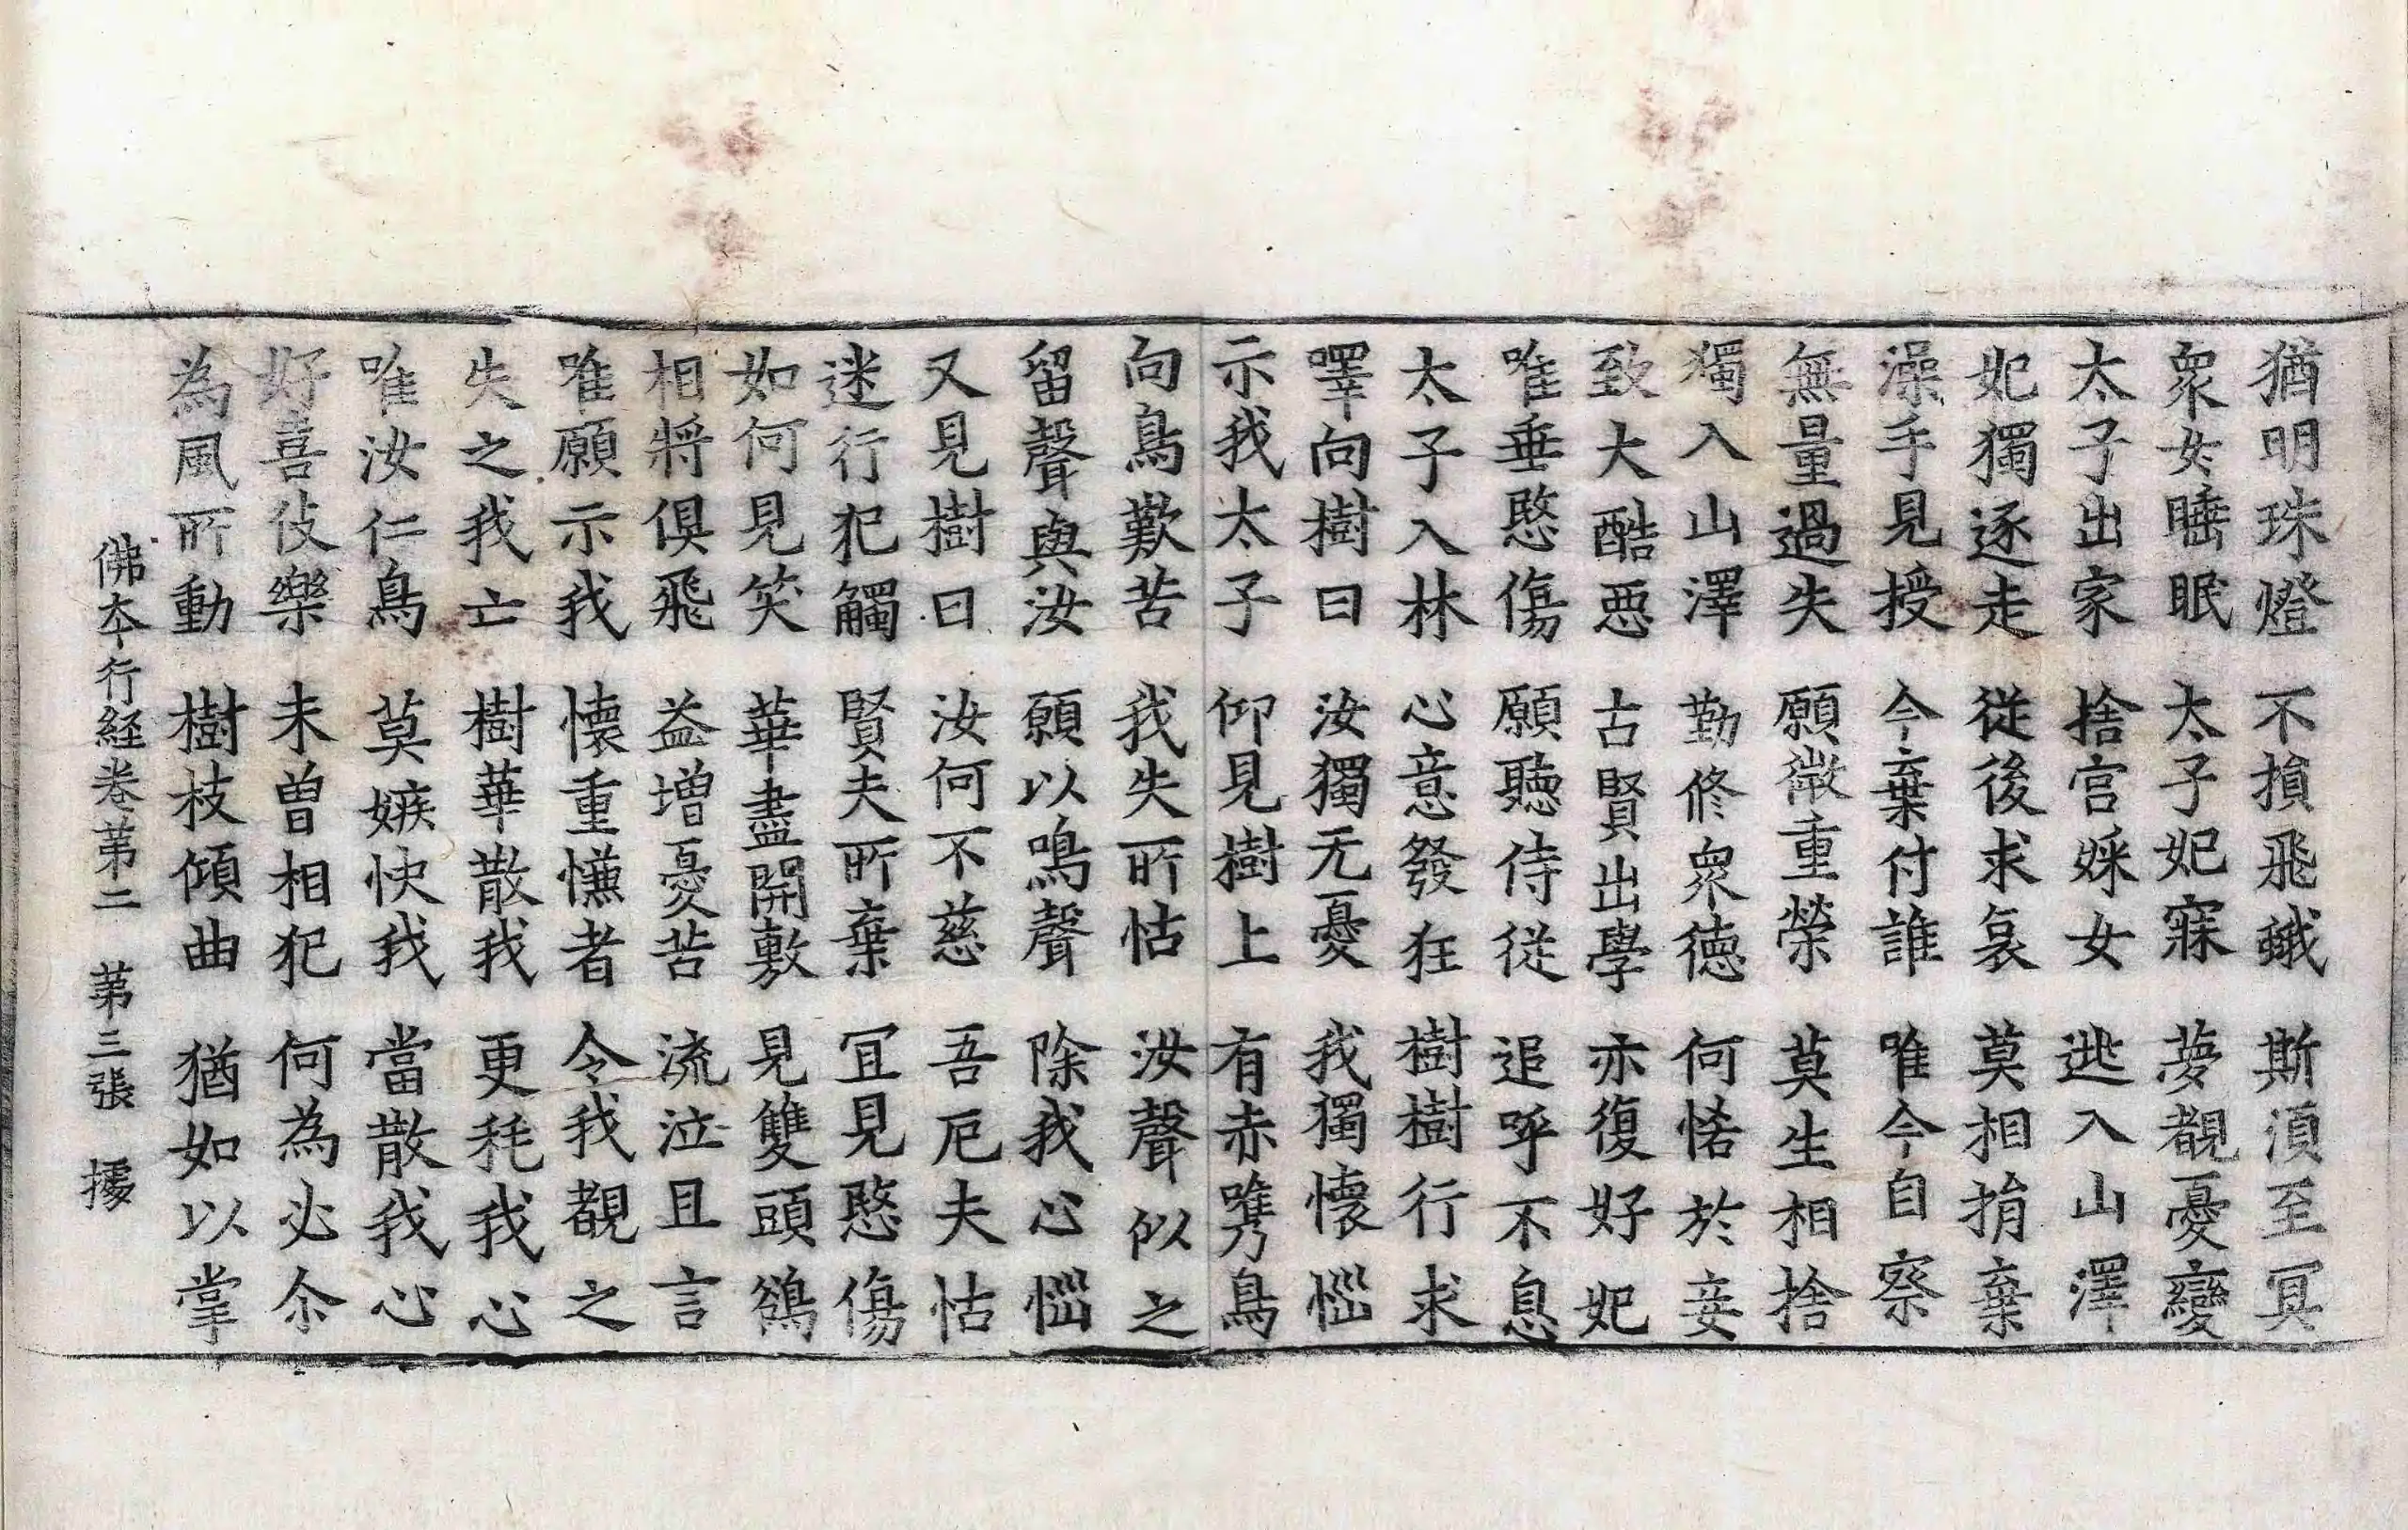 猶明珠燈 不損飛蛾 斯湏至冥
衆女睡眠 太子妃寐 夢覩憂變
太子出家 捨宫婇女 逃入山澤
妃獨逐走 従後求哀 莫相捐棄
澡手見授 今棄付誰 唯今自察
無量過失 願徵重榮 莫生相捨
獨入山澤 勤修衆德 何悋於妾
致大酷惡 古賢出學 亦復好妃
唯垂愍傷 願聽侍従 追呼不息
太子入林 心意發狂 樹樹行求
嘽向樹曰 汝獨无憂 我獨懷惱
示我太子 仰見樹上 有赤嶲鳥
向鳥歎苦 我失所怙 汝聲似之
留聲與汝 願以鳴聲 除我心惱
又見樹曰 汝何不慈 吾厄夫怙
迷行犯觸 賢夫所棄 冝見愍傷
如何見笑 華盡開敷 見雙頭鵒
相將俱飛 益增憂苦 流泣且言
唯願示我 懷重慊者 令我覩之
失之我亡 樹華散我 更秏我心
唯汝仁鳥 莫嫉快我 當散我心
好喜伎樂 未曾相犯 何為必尒
為風所動 樹枝傾曲 猶如以掌
佛夲行経卷第二 第三張 㨿